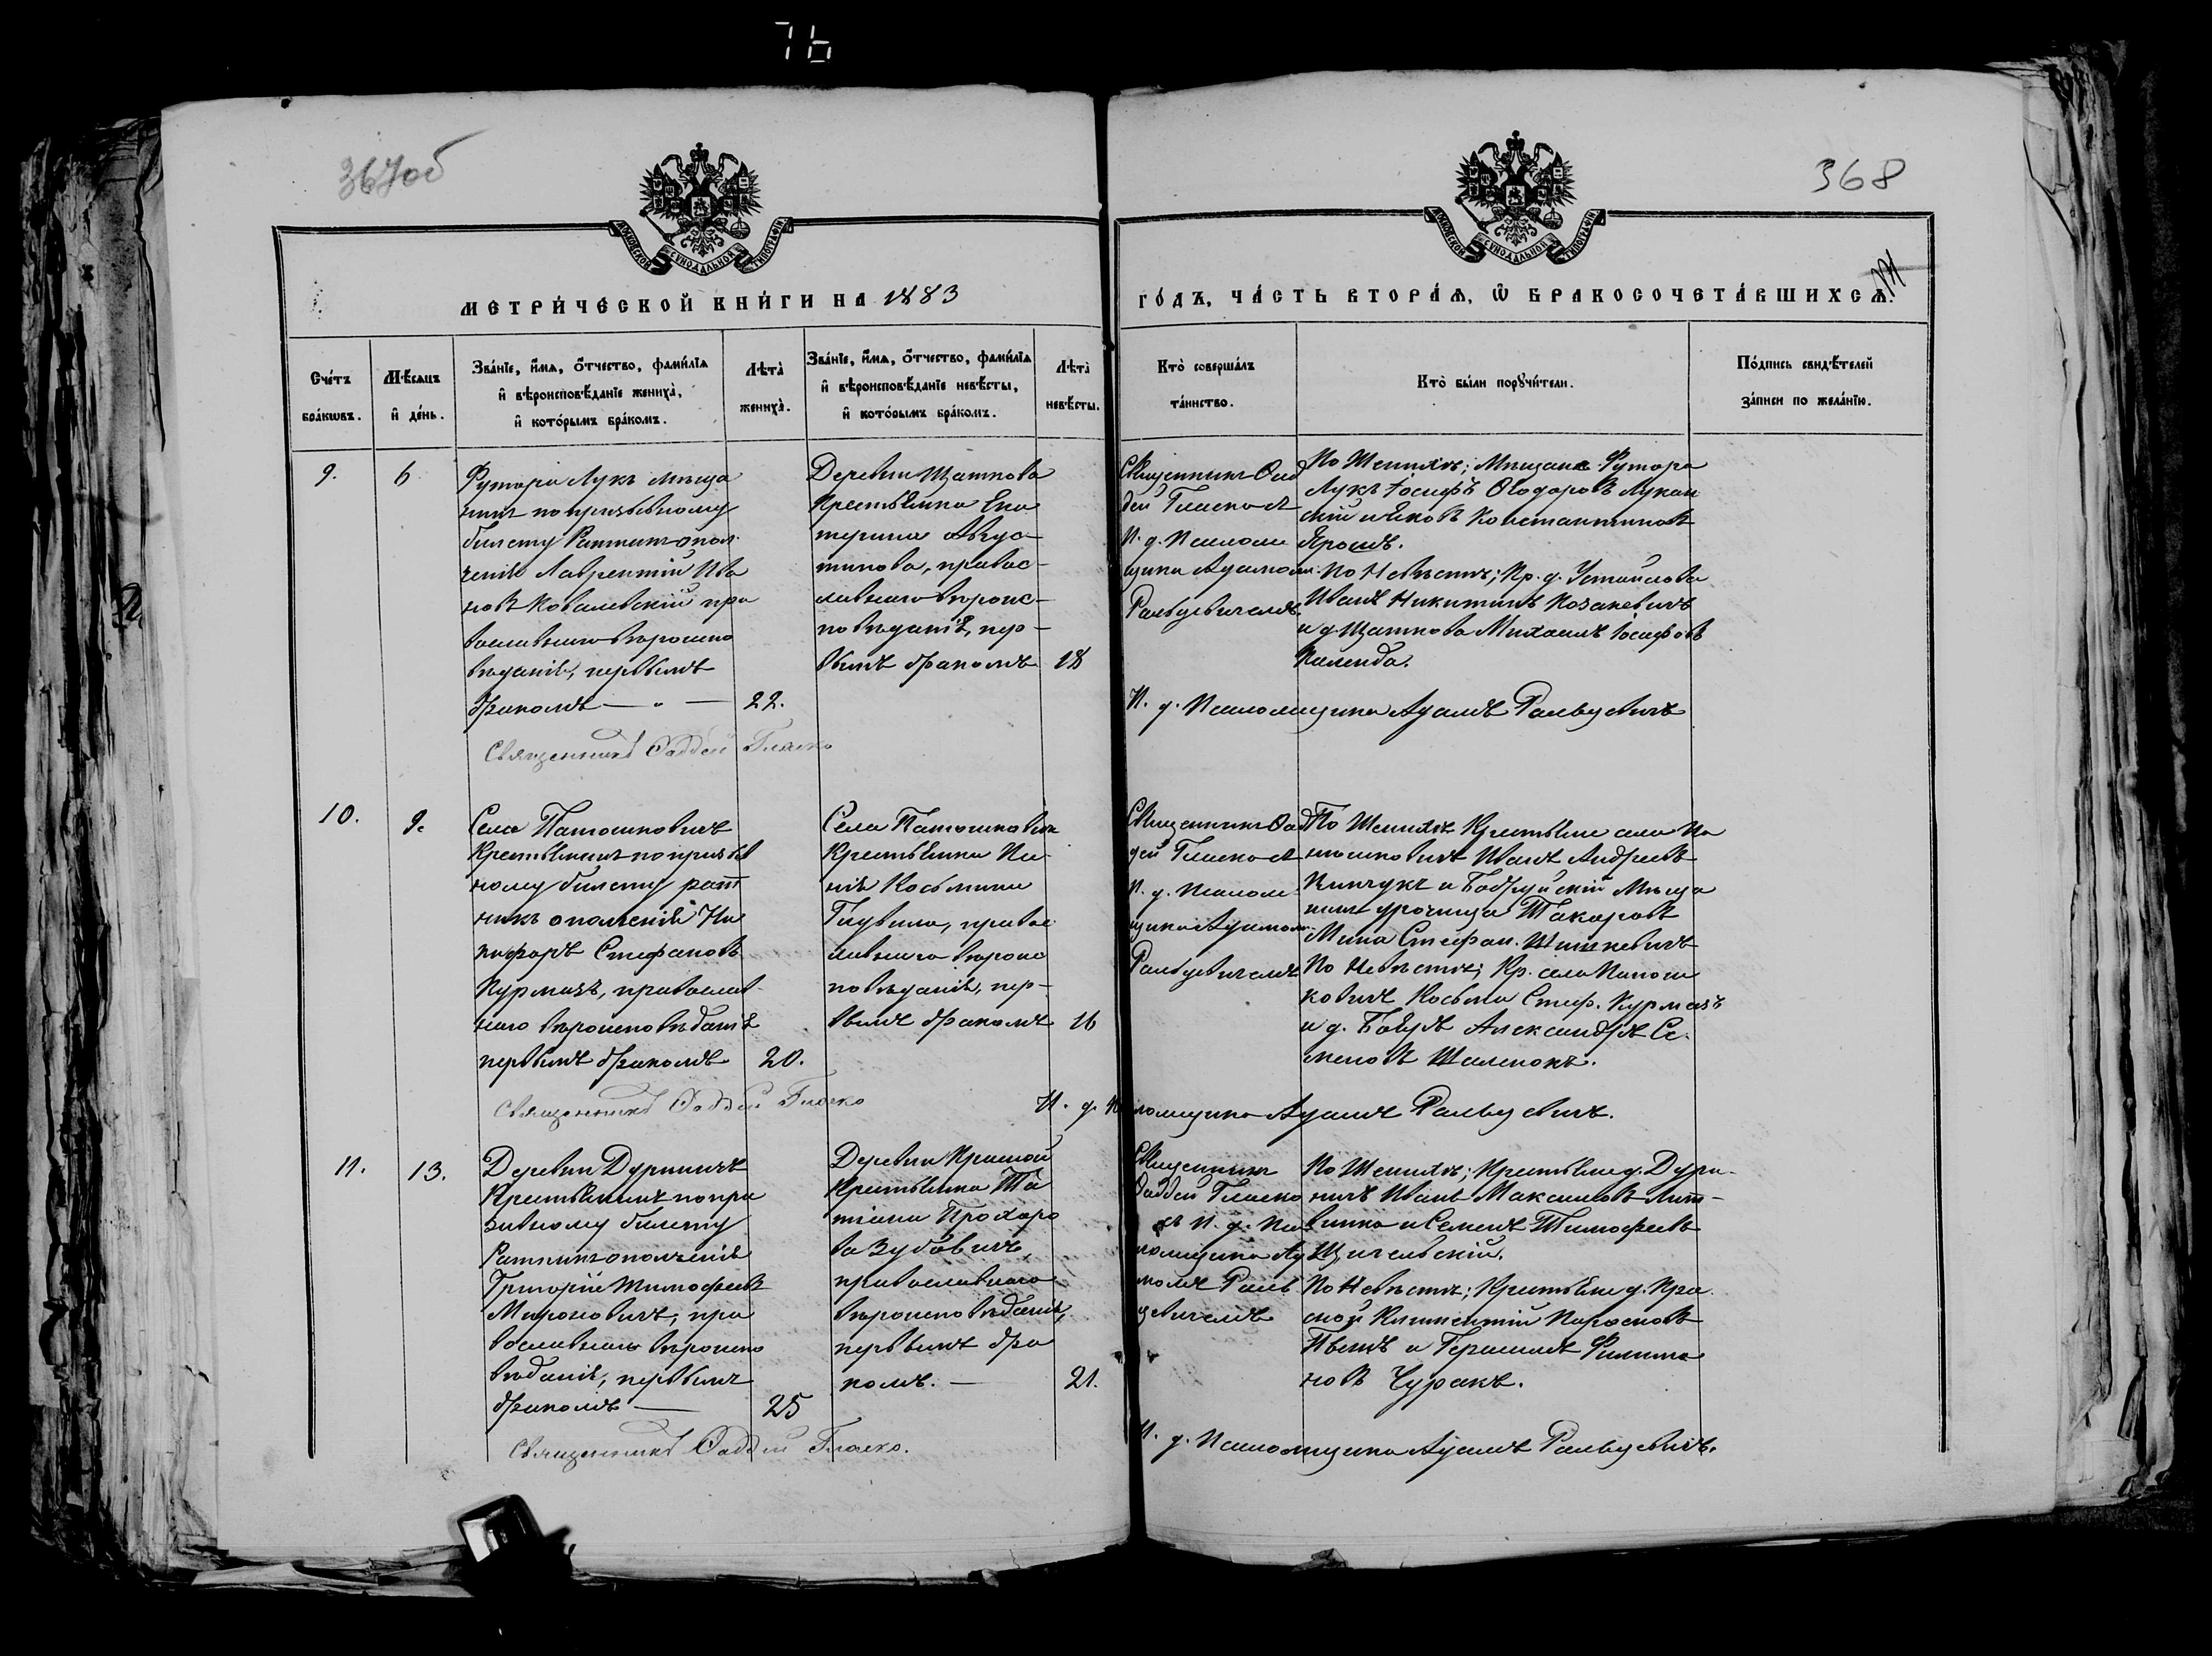 76
367об
368
МОСКОВСКОЙ СѴНОДАЛЬНОЙ ТИПОГРАФІИ
МОСКОВСКОЙ СѴНОДАЛЬНОЙ ТИПОГРАФІИ
МЕТРИ́ЧЕСКОЙ КНИ́ГИ НА 1883
ГО́ДЪ, ЧА́СТЬ ВТОРА́Я, Ѡ҆ БРАКОСОЧЕТА́ВШИХСЯ.
Сче́тъ
бра́кѡвъ.
Мѣ́сяцъ
и҆ де́нь.
Зва́нїе, и҆́мя, ѻ҆́тчество, фами́лїя
и҆ вѣроисповѣ́данїе жениха̀,
и҆ кото́рымъ бра́комъ.
Лѣта̀
жениха̀.
Зва́нїе, и҆́мя, ѻ҆́тчество, фами́лїя
и҆ вѣроисповѣ́данїе невѣ́сты,
и҆ кото́рымъ бра́комъ.
Лѣта̀
невѣ́сты.
Кто̀ соверша́лъ
та́инство.
Кто̀ бы́ли порꙋчи́тели.
По́дпись свидѣ́телей
за́писи по жела́нїю.
9.
6
Футора Лукъ мѣща
нинъ по призывному
билету Ратникъ опол
ченія Лаврентій Ива
новъ Ковалевскій пра
вославнаго вѣроиспо
вѣданія, первымъ
бракомъ — " — 22.
Священникъ Фаддей Гласко
Деревни Щаткова
Крестьянка Ека
терина Авгус
тинова, правос-
лавнаго вѣроис-
повѣданія, пер-
вымъ бракомъ 18
Священникъ Фад
дей Гласко съ
И. д. Псалом
щика Адамомъ
Ральцевичемъ
По Женихѣ; Мѣщане Футора
Лукъ Іосифъ Ѳеодоровъ Лукан
скій и Яковъ Константиновъ
Ярошъ.
По Невѣстѣ; Кр. д. Устайлова
Иванъ Никитинъ Козакевичъ
и д. Щаткова Михаилъ Іосифовъ
Календа.
И. д. Псаломщика Адамъ Ральцевичъ
10.
9.
Села Паношковичъ
Крестьянинъ по призыв
ному билету рат
никъ ополченія Ни
кифоръ Стефановъ
Курмазъ, православ
наго вѣроисповѣданія
первымъ бракомъ 20.
Священникъ Фаддей Гласко
Села Паношкович
Крестьянка
Косьмина
православ
лавнаго вѣроис
повѣданія, пер-
вымъ бракомъ 16
Священникъ Фад
дей Гласко съ
И. д. Псалом
щика Адамомъ
Ральцевичемъ
По Женихѣ Крестьяне села Па
ношковичъ Иванъ Андреевъ
Кинчукъ и Бобруйскій Мѣща
нинъ урочища Токаровъ
Мина Стефан. Шишкевичъ
По Невѣстѣ; Кр. села Панош
ковичъ Косьма Стеф. Курмазъ
и д. Александръ Се
меновъ Шаленокъ.
И. д. Псаломщика Адамъ Ральцевичъ.
11.
13.
Деревни Дуриничъ
Крестьянинъ по при
зывному билету
Ратникъ ополченія
Григорій Тимофеевъ
Мироновичъ, пра
вославнаго вѣроиспо
вѣданія, первымъ
бракомъ — 25
Священникъ Фаддей Гласко.
Деревни Красной
Крестьянка Та
тіана Прохоро
ва Зубовичъ,
православнаго
вѣроисповѣданія,
первымъ бра
комъ. — 21.
Священникъ
Фаддей Гласко
съ И. д. Пса
ломщика Ада
момъ Раль
цевичемъ
По Женихѣ; Крестьяне д. Дури-
ничъ Иванъ Максимовъ Лит-
винко и Семенъ Тимофеевъ
По Невѣстѣ; Крестьяне д. Кра
сной
и Герасимъ Филимо
новъ Чуракъ.
И. д. Псаломщика Адамъ Ральцевичъ.